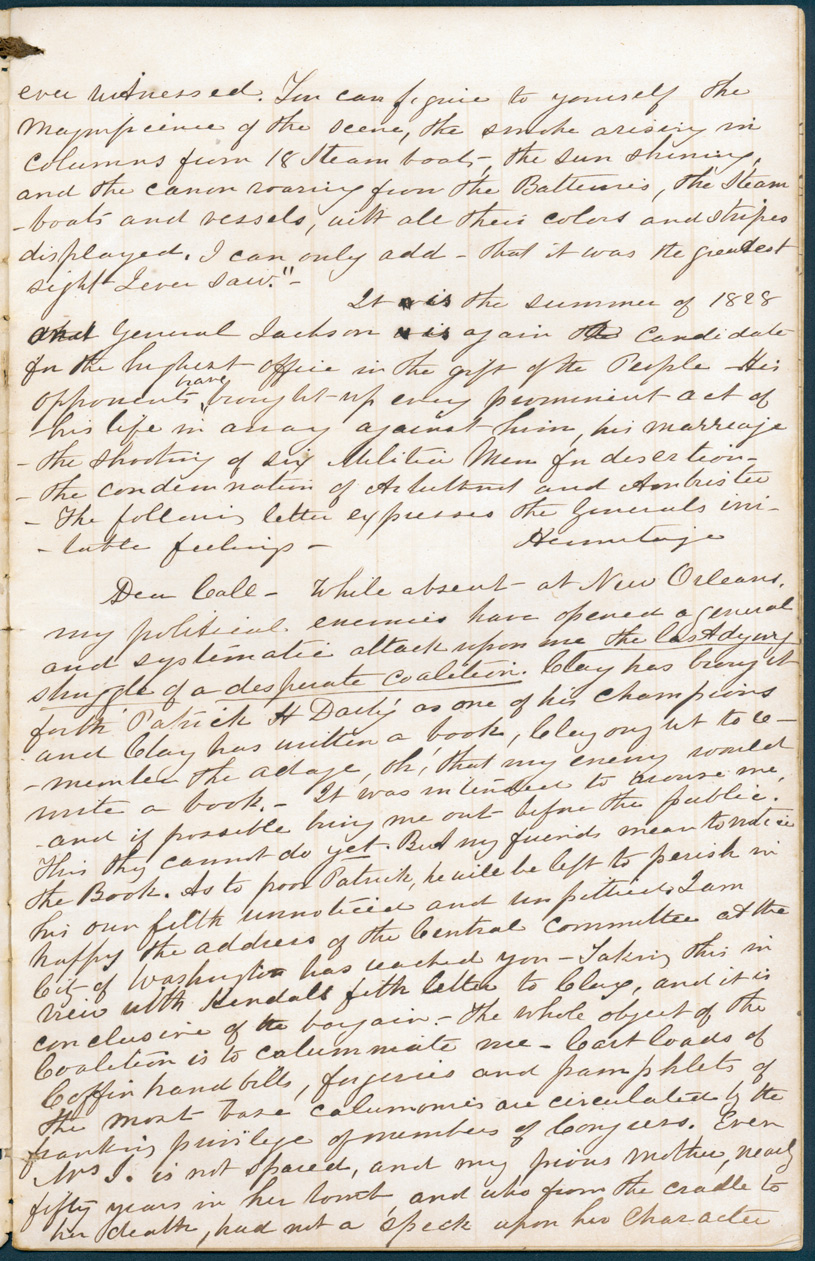 ever witnessed. You can figure to yourself the
Magnificience of the scene, the smoke arising in
columns from 18 Steam boats, the sun shining,
and the canon roaring from the Batteries, the Steam
-boats and vessels, with all their colors and stripes
displayed. I can only add - that it was the greatest
sight I ever saw."-
It is the summer of 1828
and General Jackson is again the Candidate
for the highest office in the gift of the People - His
opponents have brought up every prominent act of
his life in array against him, his marriage
- the shooting of six Militia Men for desertion -
- the condemnation of Arbuthnot and Ambrister
- The following letter expresses the Generals ini-
- table feelings - Hermitage
Dear Call - While absent at New Orleans,
my political enemies have opened a general
and systematic attack upon me the last dying
struggle of a desperate coalition. Clay has brought
forth Patrick H Darby as one of his champions
and Clay has written a book, Clay ought to re-
-member the adage, oh, that my enemy would
write a book. - It was intended to arouse me,
-and if possible bring me out before the public.
This they cannot do yet. But my friends mean to notice
the Book. As to poor Patrick, he will be left to perish in
his own filth unnoticed and unpittied. I am
happy the address of the Central Committee at the
City of Washington has reached you - Taking this in
view with Kendalls fifth letter to Clay, and it is
conclusive of the bargain. - The whole object of the
Coalition is to calumniate me - Cart loads of
Coffin hand bills, forgeries and pamphlets of
the most base calumnies are circulated by the
franking privilege of members of Congress. Even
Mrs J. is not spared, and my pious mother, nearly
fifty years in her tomb, and who from the cradle to
her death, had not a speck upon her character